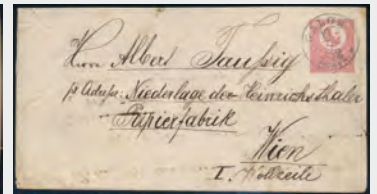 Herrn Albert Taussig
pr Adresse: Niederlage der Heinrichsthaler
Papierfabrik
Wien
I. Wollzeile